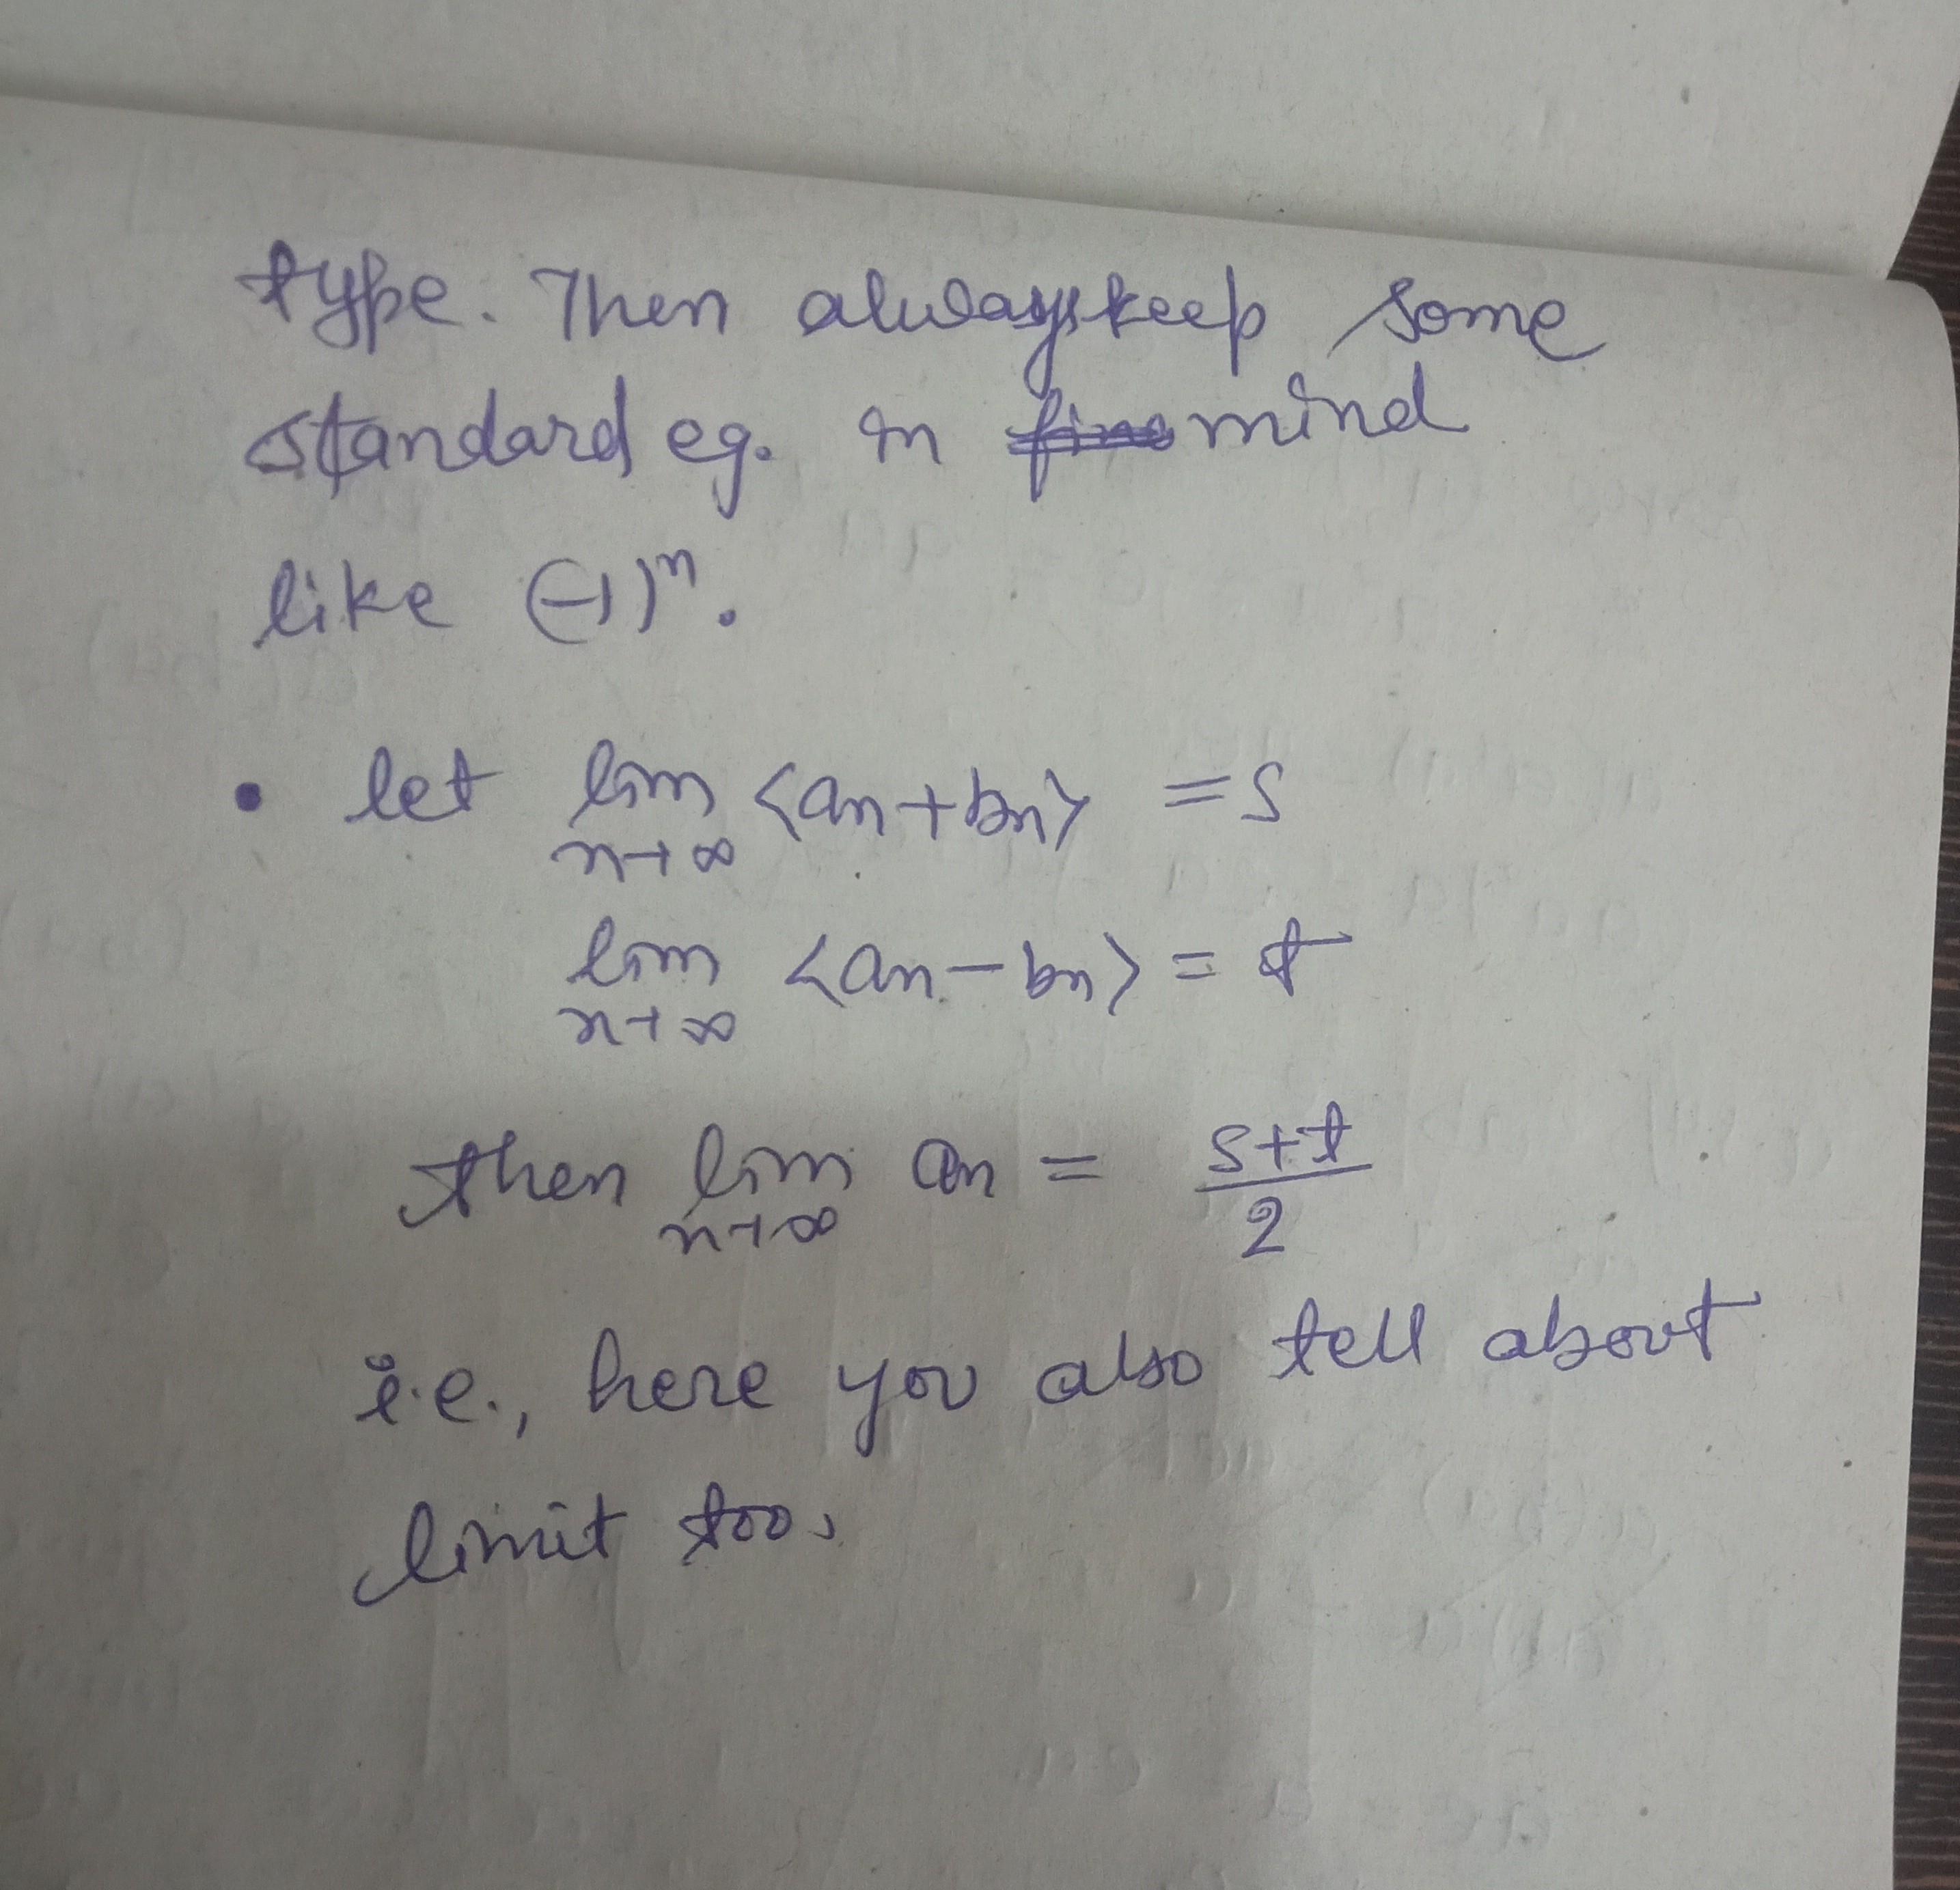 type. Then always keep some
standard eg. in mind
like (-1)ⁿ.
• let lim ⟨an+bn⟩ = s
n→∞
lim ⟨an-bn⟩ = t
n→∞
then lim an = s+t/2
n→∞
i.e., here you also tell about
limit too.